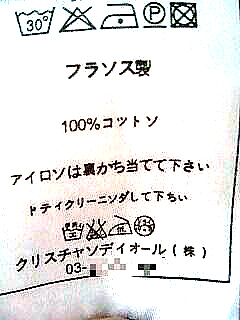 30°
P
フラソス製
100%コツトソ
アイロソは裏かち当てて下さい
ドティクリーニンダして下ちい
クリスチャソディオール(株)
03-